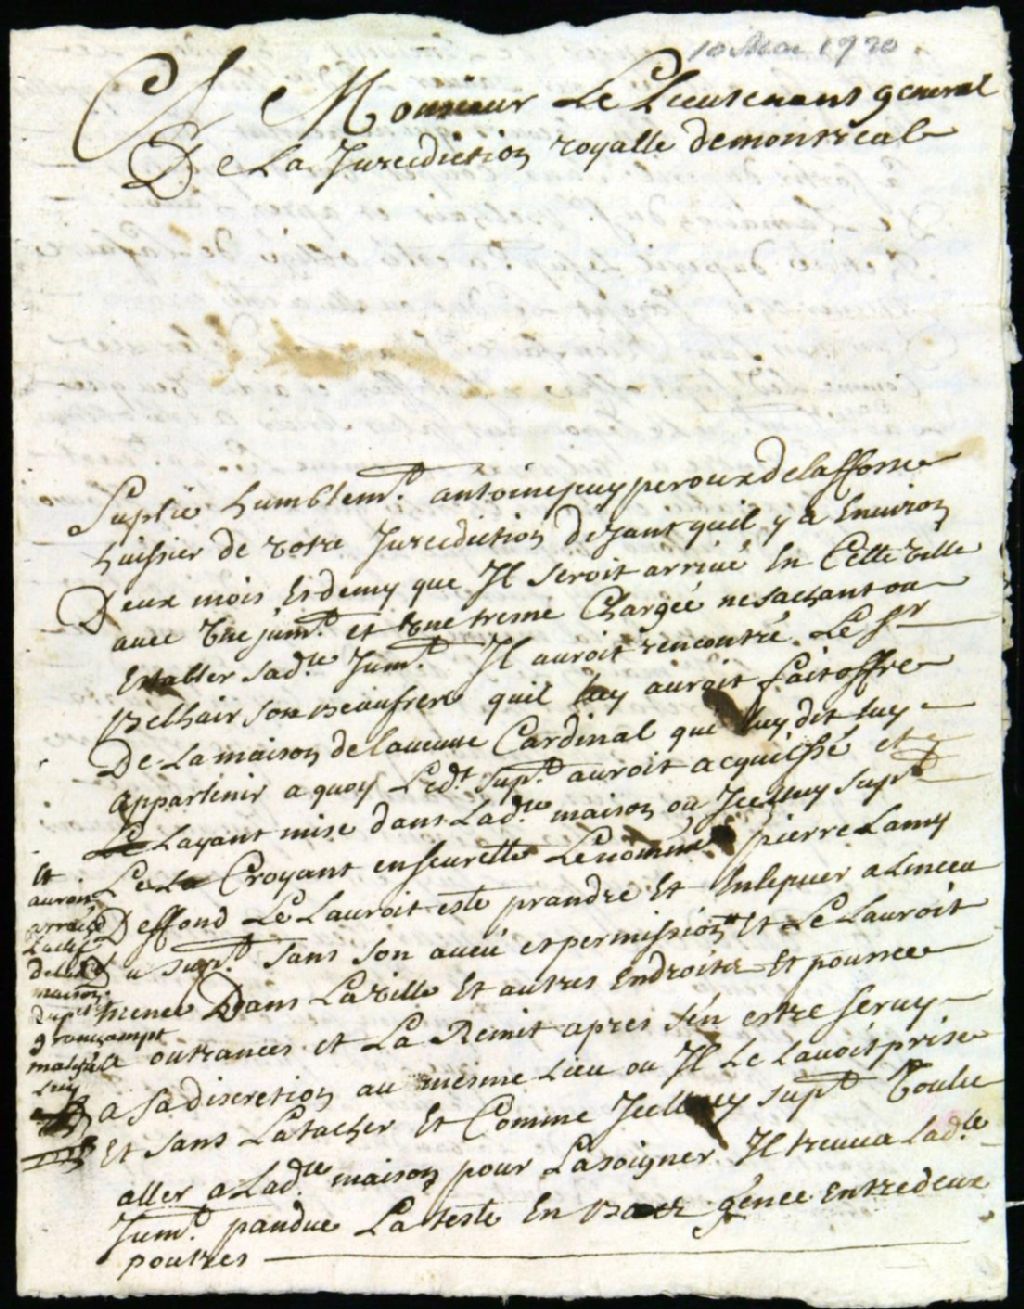 10 Mai 1720
A Monsieur Le Lieutenant general
De La Jurediction royalle demontreal
Suplie humblemt. antoine puyperoux delaffosse
huissier de votre Jurediction dezant quil y a Environ
Deux mois Et demy que Jl seroit arrivé En Cette ville
avec une jumt. et une treine Chargée ne sachant ou
Establer sadte. Jumt. Jl auroit rencontré Le Sr
Belhair son Beaufrere quil luy auroit fait offre
De La maison de laveuve Cardinal que luy dit luy
appartenir a quoy Ledt. Supt. auroit acquiessé et
Layant mise dans Ladte. maison ou Jcelluy Supt.
Le La Croyant enseurette Le nommé pierre Lamy
Deffond Le Lauroit este prandre Et Enlepuer a Linceu
du Supt. sans son aveu et permission Et Le Lauroit
mené Dans La ville Et autres Endroits Et poussée
a outrances et La Remit apres s'en estre servy
a Sa discretion au mesme Lieu ou Jl Le Lavoit prise
Et sans Latacher Et Comme Jcelluy Supt. Voulu
aller a Ladte. maison pour La soigner Jl trouva Ladte.
Jumt. pandue La teste En Bas génée entre deux
poutres
et
auroit
arraché
La clef
de lad
maison
du pt
grouchampt
malgré
Luy